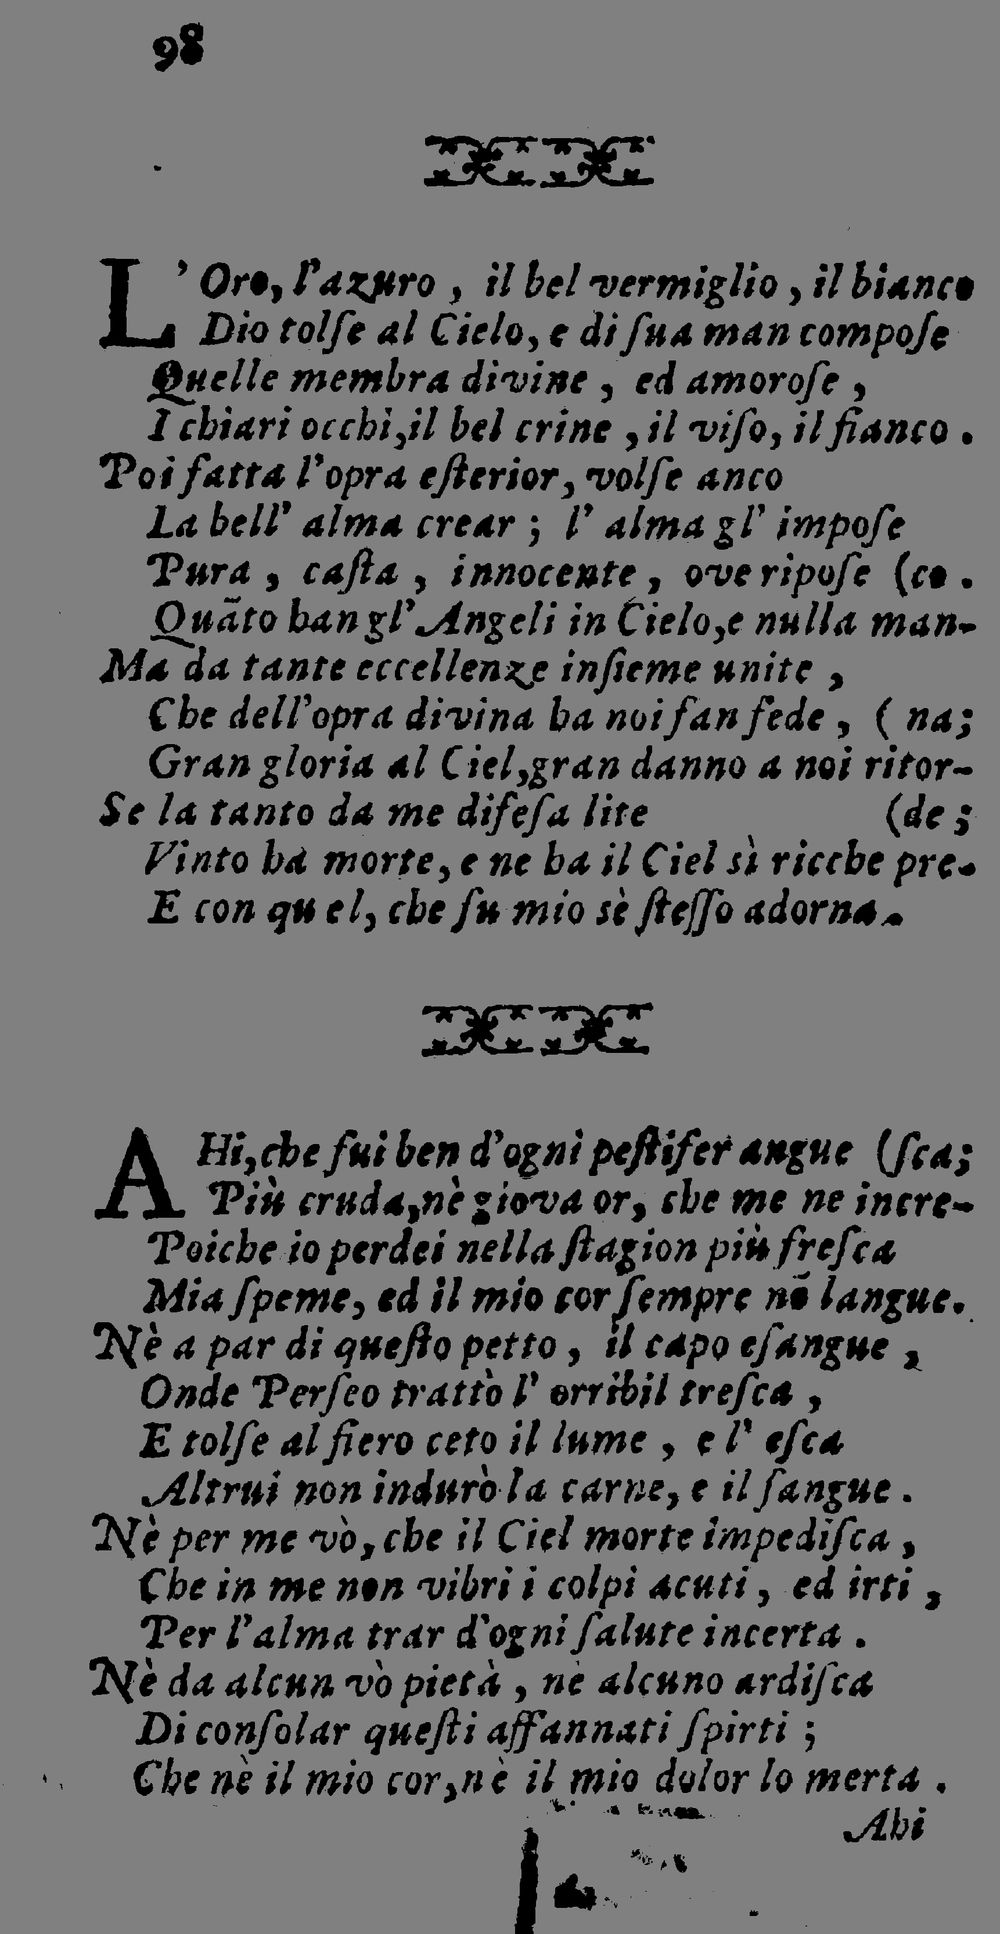 98
L'Oro, l'azuro, il bel vermiglio, il bianco
Dio tolſe al Cielo, e di ſua man compoſe
Quelle membra divine, ed amoroſe,
I chiari occhi, il bel crine, il viſo, il fianco.
Poi fatta l'opra eſterior, volſe anco
La bell' alma crear; l' alma gl' impoſe
Pura, caſta, innocente, ove ripoſe (co.
Quãto han gl' Angeli in Cielo, e nulla man-
Ma da tante eccellenze inſieme unite,
Che dell'opra divina ha noi fan fede, (na;
Gran gloria al Ciel, gran danno a noi ritor-
Se la tanto da me difeſa lite (de;
Vinto ha morte, e ne ha il Ciel sì ricche pre-
E con quel, che ſu mio sè ſteſſo adorna.
AHi, che fui ben d'ogni peſtifer angue (ſca;
Più cruda, nè giova or, che me ne incre-
Poiche io perdei nella ſtagion più freſca
Mia ſpeme, ed il mio cor ſempre nõ langue.
Nè a par di queſto petto, il capo eſangue,
Onde Perſeo trattò l' orribil treſca,
E tolſe al fiero ceto il lume, e l' eſca
Altrui non indurò la carne, e il ſangue.
Nè per me vò, che il Ciel morte impediſca,
Che in me non vibri i colpi acuti, ed irti,
Per l'alma trar d'ogni ſalute incerta.
Nè da alcun vò pietà, nè alcuno ardiſca
Di conſolar queſti affannati ſpirti;
Che nè il mio cor, nè il mio dolor lo merta.
Ahi